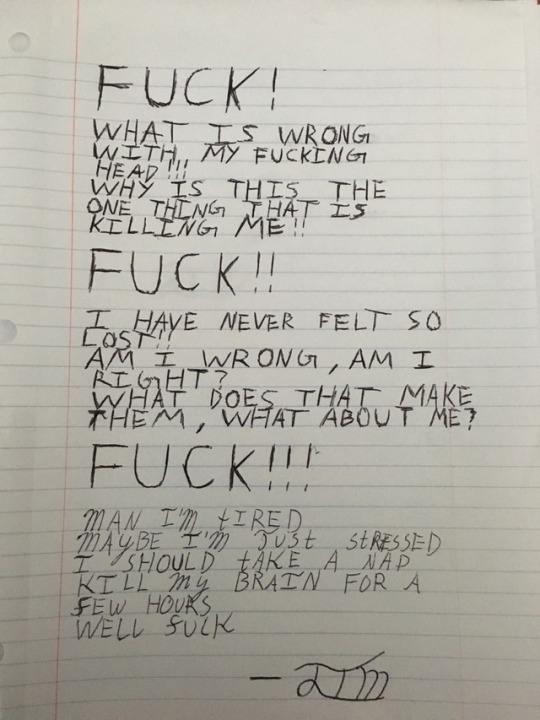 FUCK!
WHAT IS WRONG
WITH MY FUCKING
HEAD!!!
WHY IS THIS THE
ONE THING THAT IS
KILLING ME!!
FUCK!!
I HAVE NEVER FELT SO
LOST!!
AM I WRONG, AM I
RIGHT?
WHAT DOES THAT MAKE
THEM, WHAT ABOUT ME?
FUCK!!!
MAN I'M tIRED
MAYBE I'M JUSt StRESSED
I SHOULD tAKE A NAP
KILL My BRAIN FOR A
FEW HOURS
WELL FUCK